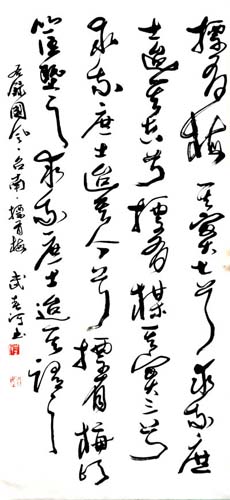 摽有梅其实七兮求我庶
士迨其吉兮摽有梅其实三兮
求我庶士迨其今兮摽有梅顷
筐塈之求我庶士迨其谓之
右录国风召南摽有梅